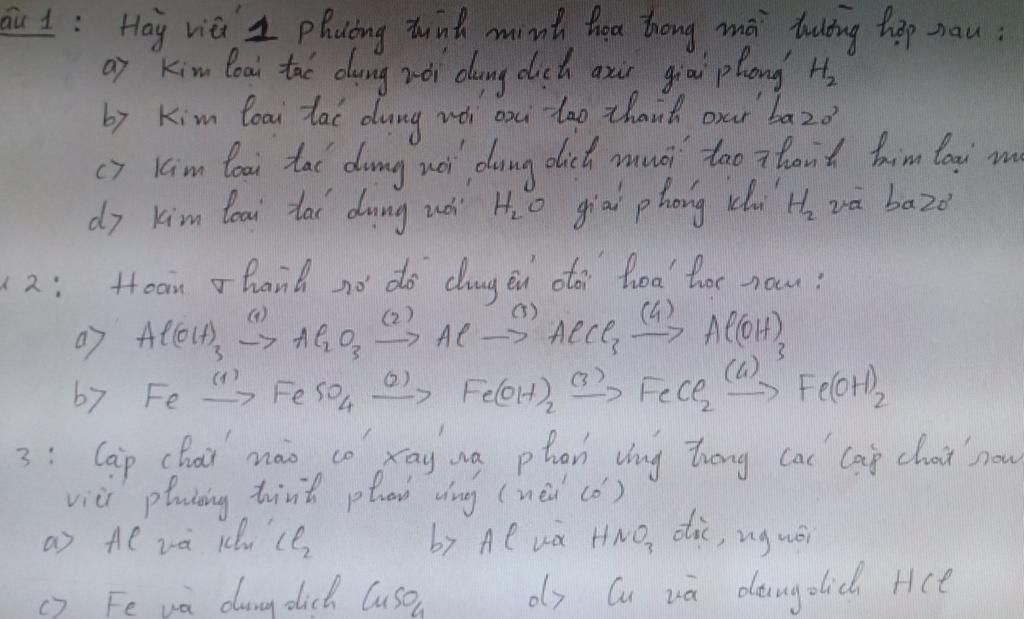 âu 1 : Hãy viết 1 phương trình minh họa trong mỗi trường hợp sau :
a) Kim loại tác dụng với dung dịch axit giải phóng H₂
b) Kim loại tác dụng với oxi tạo thành oxit bazơ
c) Kim loại tác dụng với dung dịch muối tạo thành kim loại m
d) Kim loại tác dụng với H₂O giải phóng khí H₂ và bazơ
2 : Hoàn thành sơ đồ chuyển đổi hoá học sau :
a) Al(OH)₃ (1)→ Al₂O₃ (2)→ Al (3)→ AlCl₃ (4)→ Al(OH)₃
b) Fe (1)→ FeSO₄ (2)→ Fe(OH)₂ (3)→ FeCl₂ (4)→ Fe(OH)₂
3 : Cặp chất nào có xảy ra phản ứng trong các cặp chất sau
viết phương trình phản ứng (nếu có)
a) Al và khí Cl₂ b) Al và HNO₃ đặc, nguội
c) Fe và dung dịch CuSO₄ d) Cu và dung dịch HCl